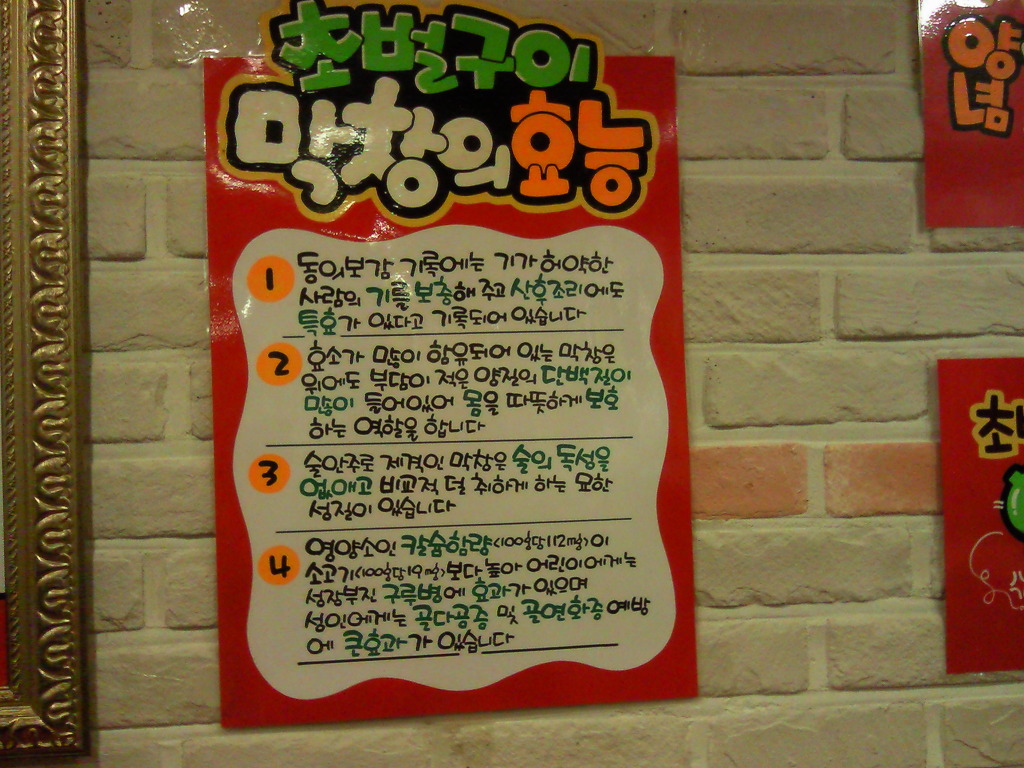 초벌구이
막창의 효능
1 동의보감 기록에는 기가 허약한
사람의 기를 보충해 주고 산후조리에도
특효가 있다고 기록되어 있습니다
2 효소가 많이 함유되어 있는 막창은
위에도 부담이 적은 양질의 단백질이
많이 들어있어 몸을 따뜻하게 보호
하는 역할을 합니다
3 술안주로 제격인 막창은 술의 독성을
없애고 비교적 덜 취하게 하는 묘한
성질이 있습니다
4 영양소인 칼슘함량<100g당12mg>이
소고기<100g당9mg>보다 높아 어린이에게는
성장부진 구루병에 효과가 있으며
성인에게는 골다공증 및 골연화증 예방
에 큰효과가 있습니다
양
념
초